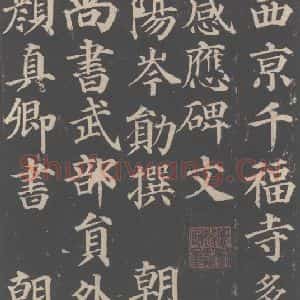 西京千福寺多
感應碑文
陽岑勛撰 朝
尚書武部員外
顏真卿書 朝
Shufawang.cn